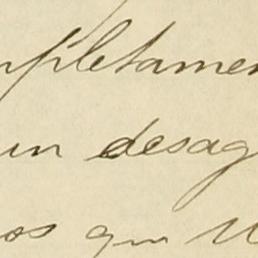 mpletamen
un desag
os que U